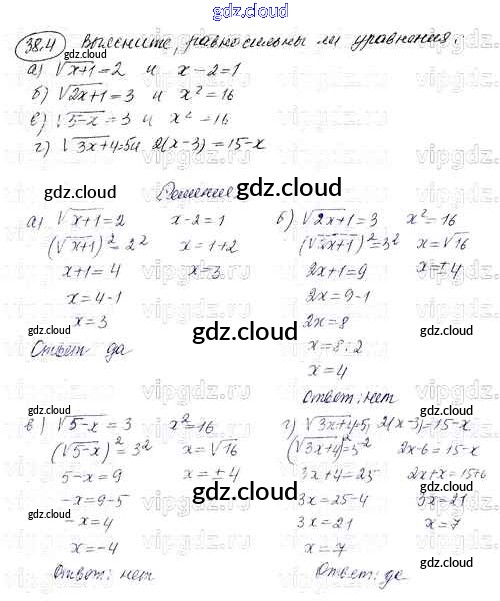 gdz.cloud
38.4 Выясните, равносильны ли уравнения.
а) √x+1 = 2 и x-2=1
б) √2x+1 = 3 и x²=16
в) √5-x = 3 и x²=16
г) √3x+4=5 и 2(x-3)=15-x
gdz.cloud
gdz.cloud
Решение.
gdz.cloud
а) √x+1 = 2 x-2=1
(√x+1)² = 2² x=1+2
x+1=4 x=3
x=4-1
x=3
Ответ: да
б) √2x+1 = 3 x²=16
(√2x+1)²=3² x=√16
2x+1=9 x=±4
2x=9-1
2x=8
x=8:2
x=4
Ответ: нет
gdz.cloud
gdz.cloud
gdz.cloud
gdz.cloud
в) √5-x = 3 x²=16
(√5-x)²=3² x=√16
5-x=9 x=±4
-x=9-5
-x=4
x=-4
Ответ: нет
г) √3x+4=5; 2(x-3)=15-x
(√3x+4)²=5² 2x-6=15-x
3x+4=25 2x+x=15+6
3x=25-4 3x=21
3x=21 x=7
x=7
Ответ: да
gdz.cloud
gdz.cloud
gdz.cloud
gdz.cloud
vipgdz.ru